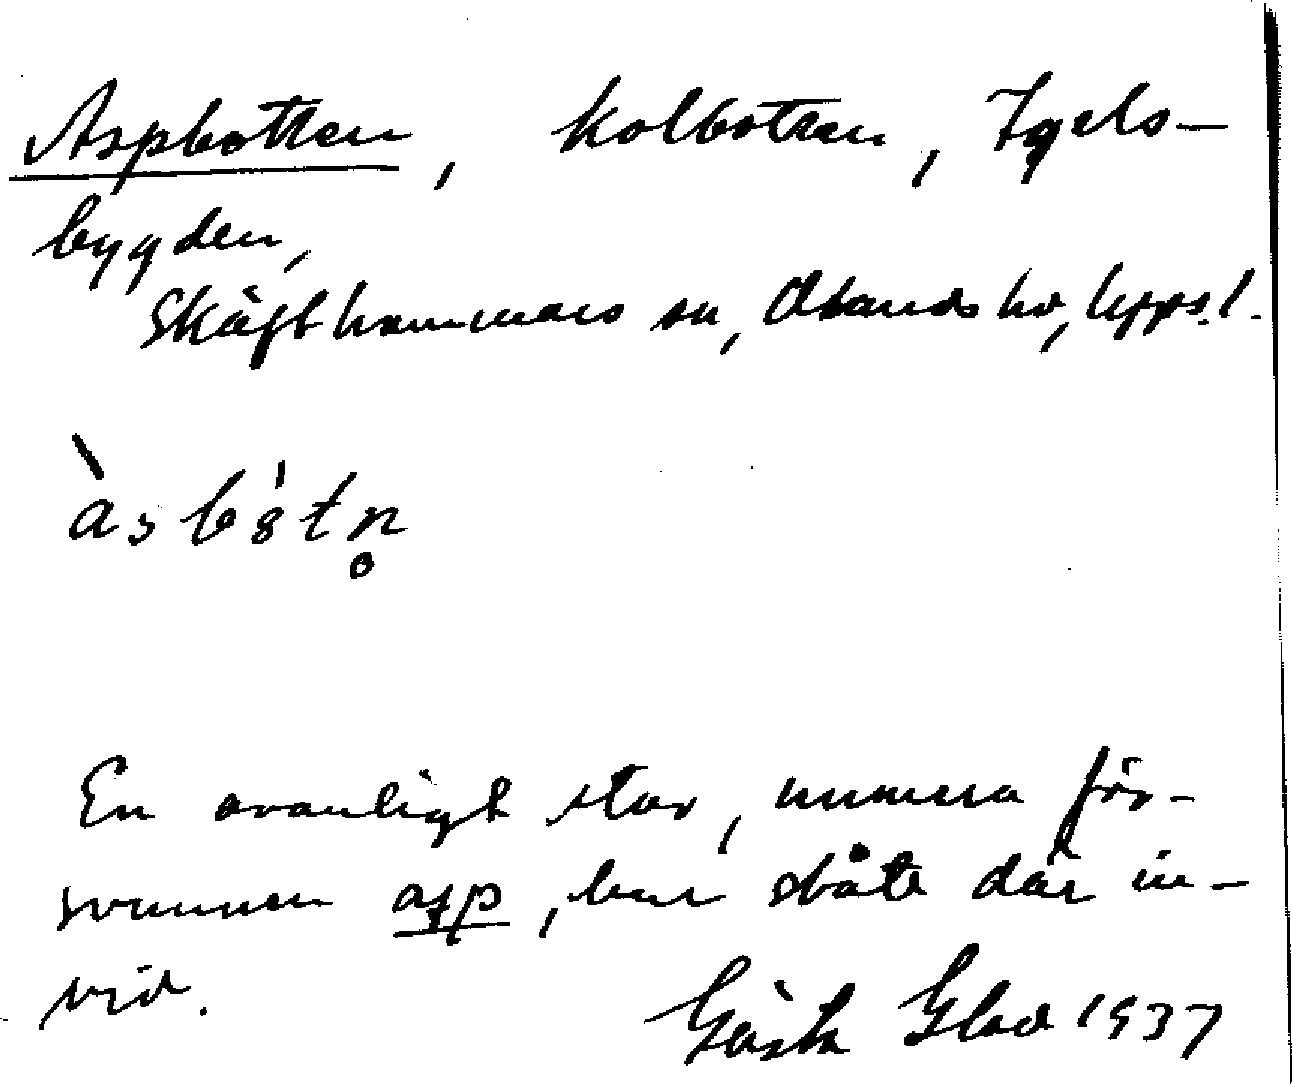 Aspbotten, kolbotten, Igels-
bygden,
Skäfthammars sn, Olands hd, Uppsl.
àsbòtn̥
En ovanligt stor, numera för-
svunnen asp, har stått där in-
vid.
Gösta Glad 1937